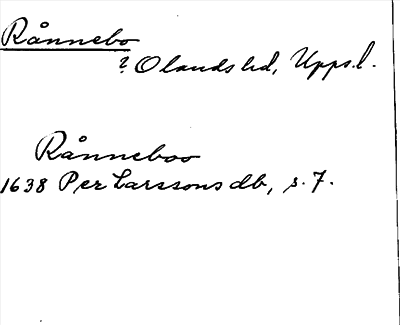 Rånnebo
? Olands hd, Upps.l.
Rånneboo
1638 Per Larssons db, s. 7.